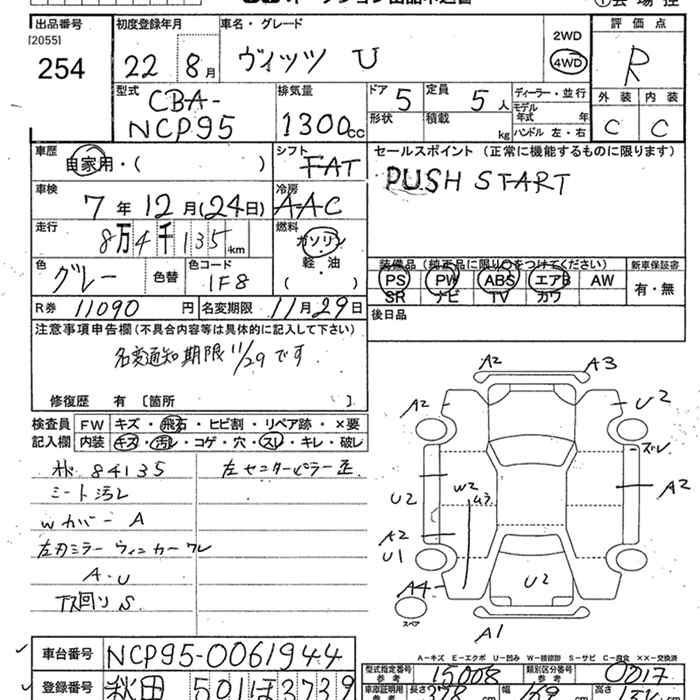 出品番号 初度登録年月 車名・グレード 評価点
[2055] 254 22 8月 ヴィッツ U 2WD 4WD R
型式 CBA-NCP95 排気量 1300cc ドア 5 定員 5人 ディーラー・並行 外装 内装
形状 積載 kg モデル年式 年 ハンドル 左・右 C C
車歴 自家用・( ) シフト FAT セールスポイント (正常に機能するものに限ります)
車検 7年12月(24日) 冷房 AAC PUSH START
走行 8万4千135km 燃料 ガソリン 軽・油 ( )
色 グレー 色替 色コード 1F8
装備品 (純正品に限り○をつけてください) 新車保証書
PS PW ABS エアB AW 有・無
SR ナビ TV カワ
R券 11090円 名変期限 11月29日 後日品
注意事項申告欄(不具合内容等は具体的に記入して下さい)
名変通知期限11/29です.
修復歴 有 〔箇所 〕
検査員記入欄 FW キズ・飛石・ヒビ割・リペア跡・×要
内装 キズ・汚レ・コゲ・穴・スレ・キレ・破レ
84135 左センターピラー歪.
シート汚レ
Wカバー A
左ドアミラー ウィンカーワレ
A.U
下回りS
A2 A3
A2 U2
ズレ
U2 W2 A2
A2
U1
A4 U2
スペア
A1
A=キズ E=エクボ U=凹み W=補修跡 S=サビ C=腐食 ××=交換済
車台番号 NCP95-0061944
型式指定番号 参考 15008 類別区分番号 参考 0217
登録番号 秋田 501 ほ 3739
車庫証明用 参考 長さ 378 cm 幅 169 cm 高さ cm